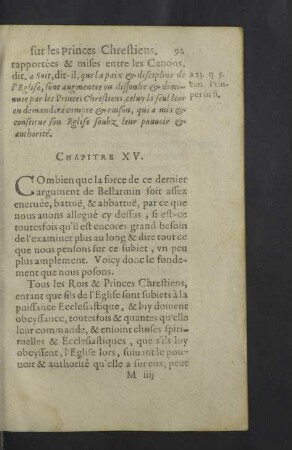 sur les Princes Chrestiens. 92
rapportées & mises entre les Canons,
dit, a soit, dit-il, que la paix & discipline de
l'Eglise, soit augmentee ou dissoulte & dimi-
nuee par les Princes Chrestiens, celuy là seul leur
en demandera compte & raison, qui a mis &
constitué son Eglise soubz leur pouuoir &
authorité.
a 23. q. 5.
can. Prin-
pes in fi.
CHAPITRE XV.
COmbien que la force de ce dernier
argument de Bellarmin soit assez
eneruée, battuë, & abbattuë, par ce que
nous auons allegué cy dessus, si est-ce
toutesfois qu'il est encores grand besoin
de l'examiner plus au long & dire tout ce
que nous pensons sur ce subiet, vn peu
plus amplement. Voicy donc le fonde-
ment que nous posons.
Tous les Rois & Princes Chrestiens,
entant que fils de l'Eglise sont subiets à la
puissance Ecclesiastique, & luy doiuent
obeyssance, toutesfois & quantes qu'elle
leur commande, & enioint choses spiri-
tuelles & Ecclesiastiques, que s'ils luy
obeyssent, l'Eglise lors, suiuant le pou-
uoir & authorité qu'elle a sur eux, peut
M iiij